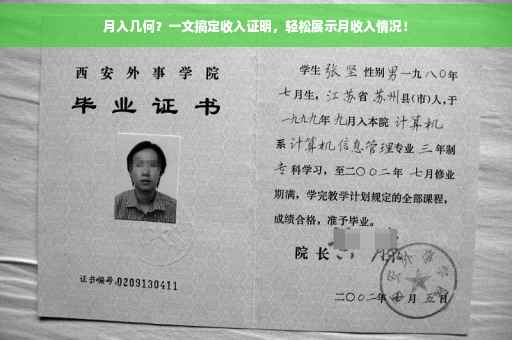 月入几何？一文搞定收入证明，轻松展示月收入情况！
西安外事学院
毕业证书
证书编号:0209130411
学生 张坚 性别 男 一九八〇年
七月生，江苏省 苏州县(市)人，于
一九九九年 九月入本院 计算机
系 计算机信息管理专业 三 年制
专科学习，至二〇〇二年 七月修业
期满，学完教学计划规定的全部课程，
成绩合格，准予毕业。
院长
二〇〇二年 七月 五日